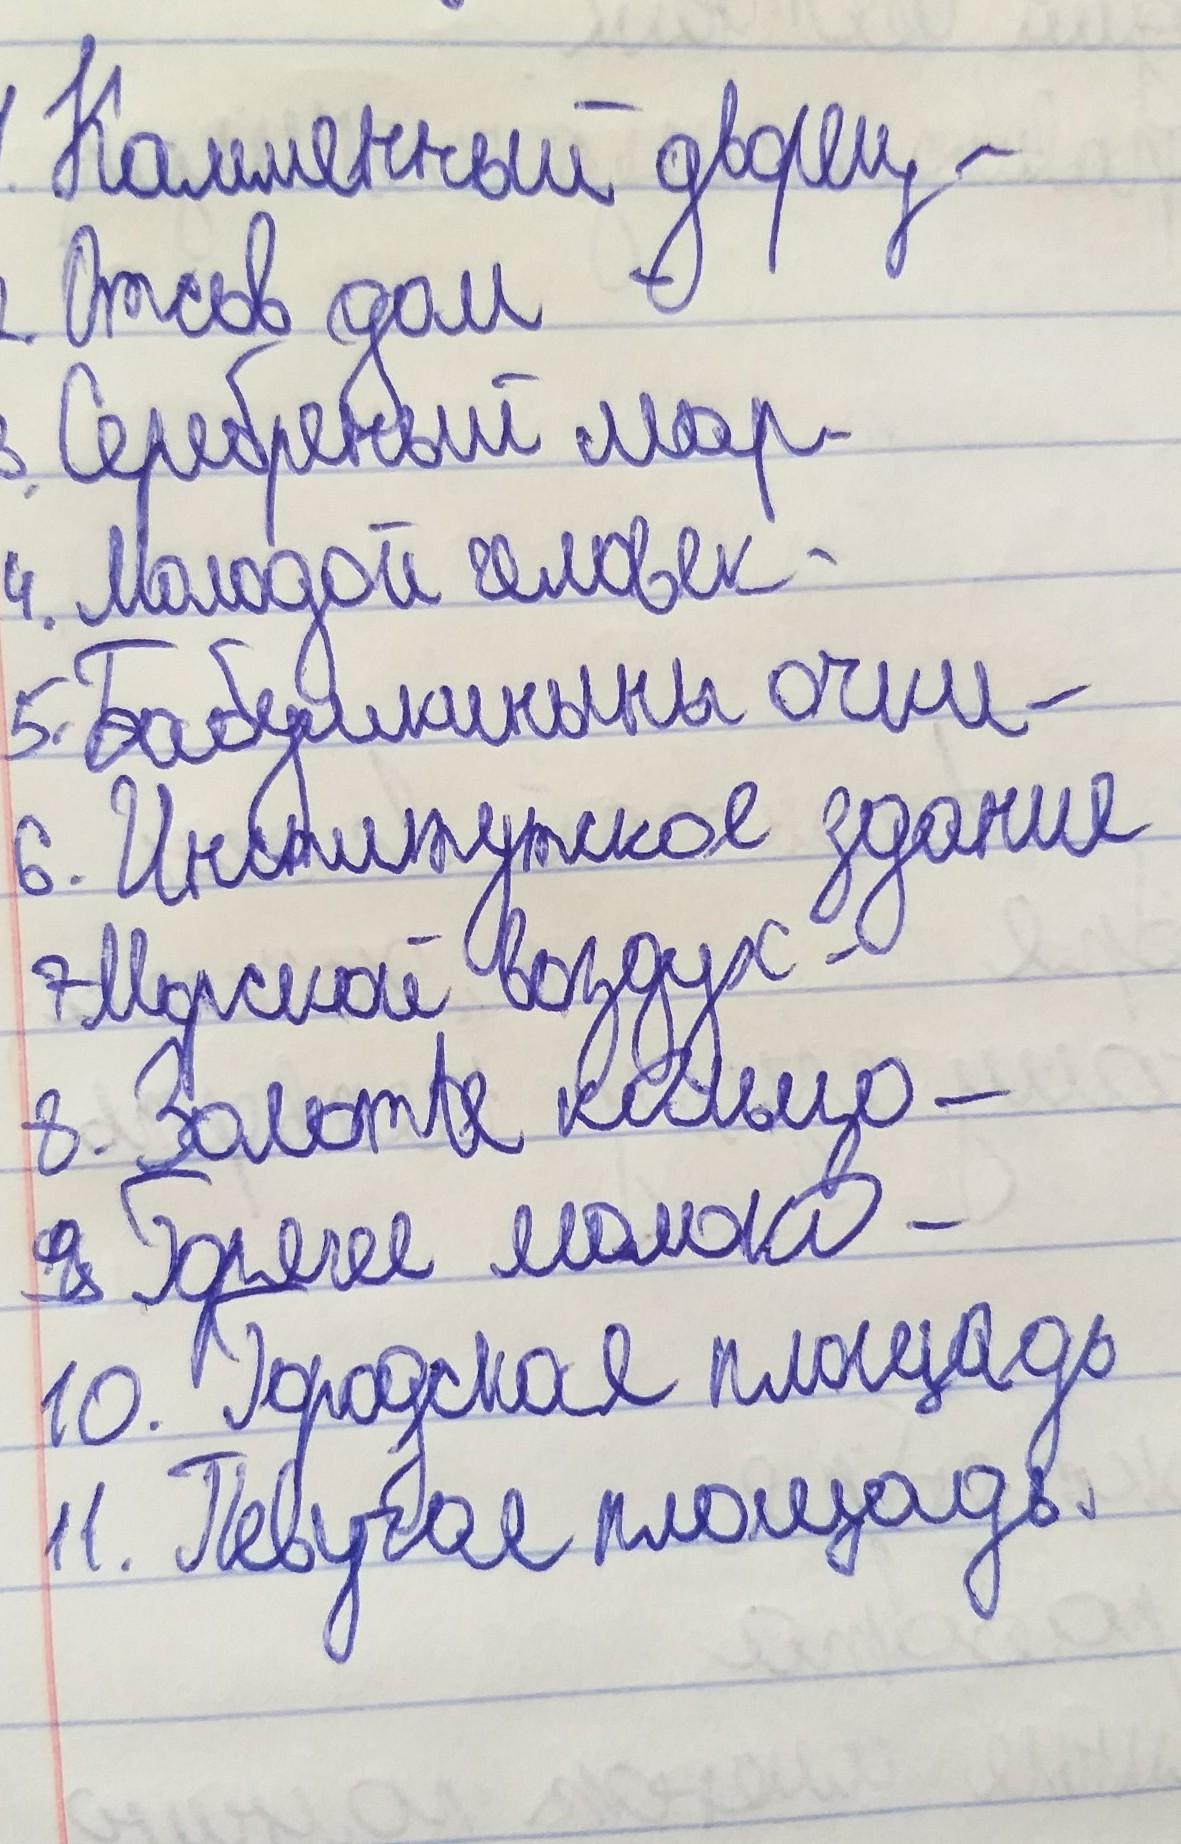 1. Камменный дворец -
2. Отсов дом -
3. Серебреный мар-
4. Молодой человек -
5. Бабушкиныны очки -
6. Институтское здание
7 Морской воздух -
8. Золоте кольцо -
9. Горячее молоко -
10. Городская площадь
11. Певучая площадь.